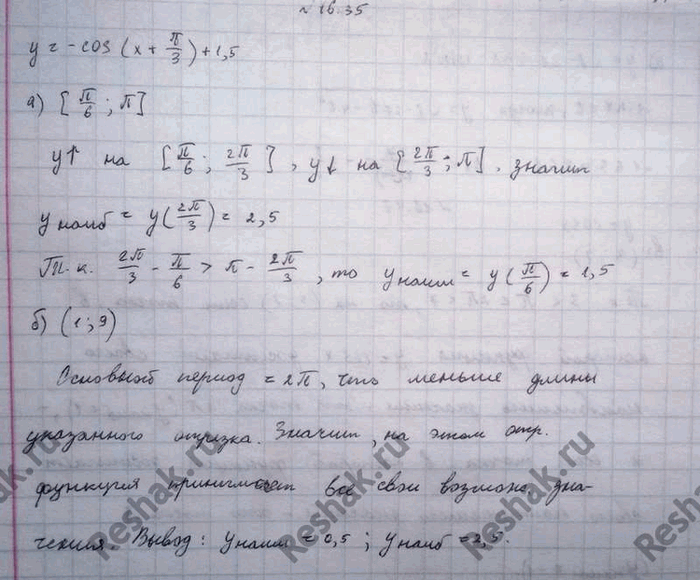 № 16.35
y = -cos (x + π/3) + 1,5
а) [π/6 ; π]
y↑ на [π/6 ; 2π/3], y↓ на [2π/3 ; π], значит
y наиб = y(2π/3) = 2,5
Т.к. 2π/3 - π/6 > π - 2π/3, то y наим = y(π/6) = 1,5
б) (1 ; 9)
Основной период = 2π, что меньше длины
указанного отрезка. Значит, на этом отр.
функция принимает все свои возможн. зна-
чения. Вывод: y наим = 0,5 ; y наиб = 2,5.
Reshak.ru
Reshak.ru
Reshak.ru
Reshak.ru